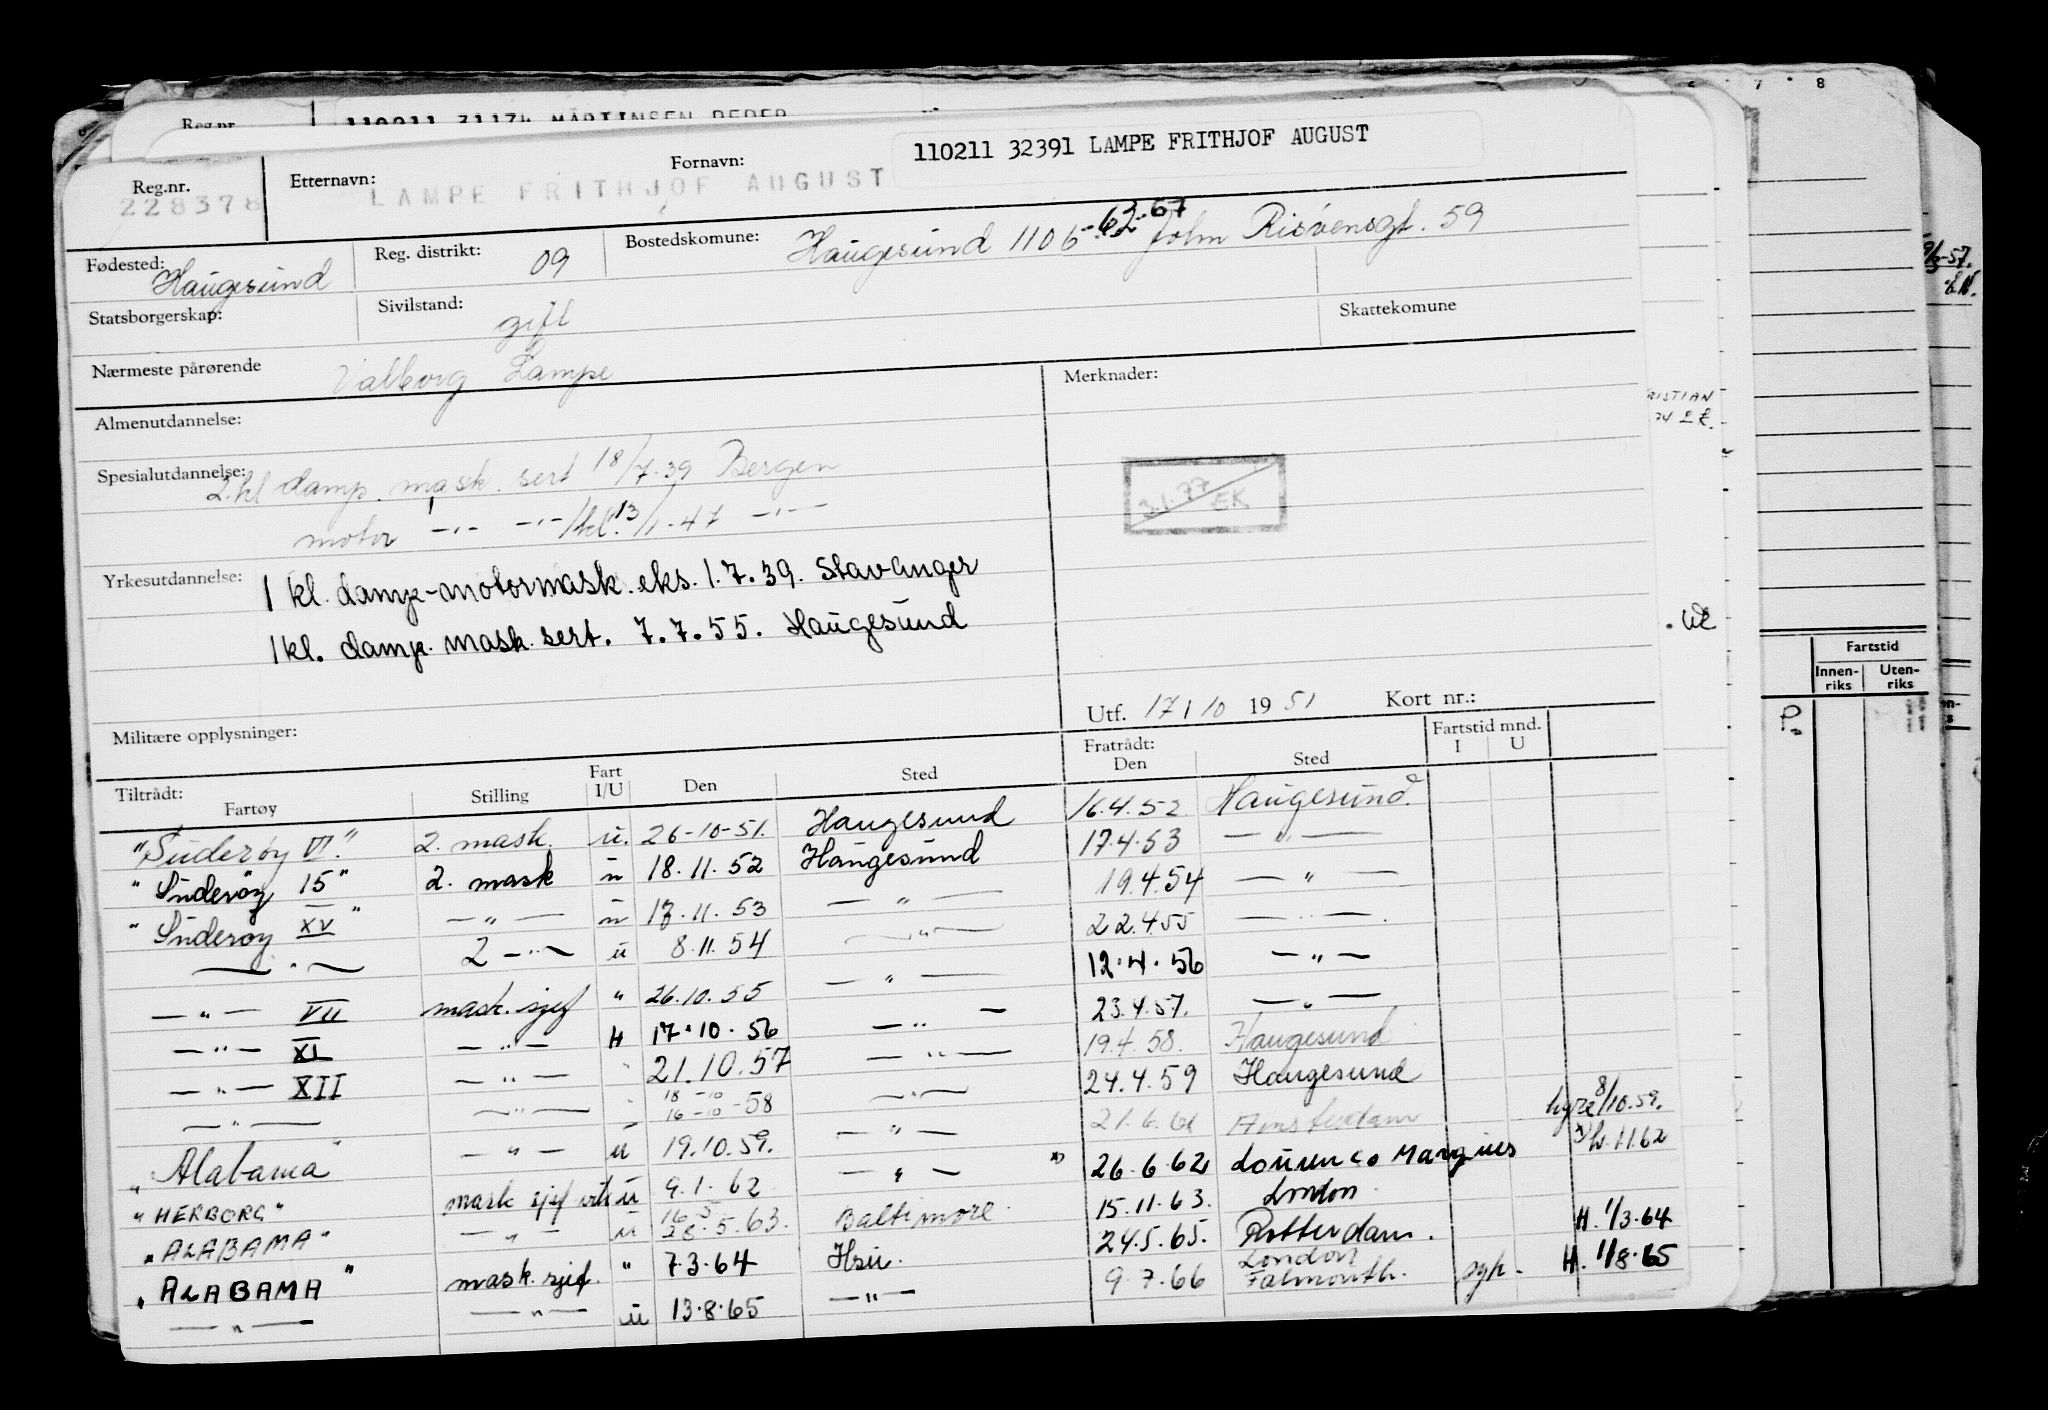 110211 31174 MARTINSEN PEDER
Reg.nr.
110211 32391 LAMPE FRITHJOF AUGUST
Reg.nr. Etternavn: Fornavn:
228378 LAMPE FRITHJOF AUGUST
Fødested: Haugesund Reg. distrikt: 09 Bostedskomune: Haugesund 1106 John Risøensgt. 59
Statsborgerskap: Sivilstand: gift Skattekomune
Nærmeste pårørende Valborg Lampe
Almenutdannelse: Merknader:
Spesialutdannelse: 2.kl damp. mask. sert 18/7.39 Bergen
3.1.77 EK
motor -"- -"- /kl. 13/1-47 -"-
Yrkesutdannelse: 1 kl. damp-motormask. eks. 1.7.39. Stavanger
1kl. damp. mask. sert. 7.7.55. Haugesund
Utf. 17/10 1951 Kort nr.:
Militære opplysninger:
Tiltrådt: Fartøy Stilling Fart I/U Den Sted Fratrådt: Den Sted Fartstid mnd. I U
"Suderøy VI." 2. mask. u. 26-10-51. Haugesund 16.4.52 Haugesund.
"Suderøy 15" 2. mask u 18.11.52 Haugesund 17.4.53 -"-
"Suderøy XV" -"- u 13.11.53 -"- 19.4.54 -"-
-"- 2 -"- u 8.11.54 -"- 22.4.55 -"-
-"- VII mask. sjef " 26.10.55 -"- 12.4.56 -"-
-"- XI -"- H 17.10.56 -"- 23.4.57. -"-
-"- XII -"- " 21.10.57 -"- 19.4.58. Haugesund
-"- -"- " 18-10 16-10-58 -"- 24.4.59 Haugesund
"Alabama" -"- u 19.10.59. -"- 21.6.61 Amsterdam hyre 8/10.59.
"HERBORG" mask sjef u 9.1.62 -"- x) 26.6.62 Lourenco Marques
"ALABAMA" -"- u 16.5 28.5.63. Baltimore. 15.11.63. London.
"ALABAMA" mask. sjef. " 7.3.64 Hsu. 24.5.65. Rotterdam. H. 1/3.64
-"- -"- u 13.8.65 -"- 9.7.66 London Falmouth. syk. H. 1/8.65
7 8
9/3-57.
RISTIAN
Fartstid
Innen-riks Uten-riks